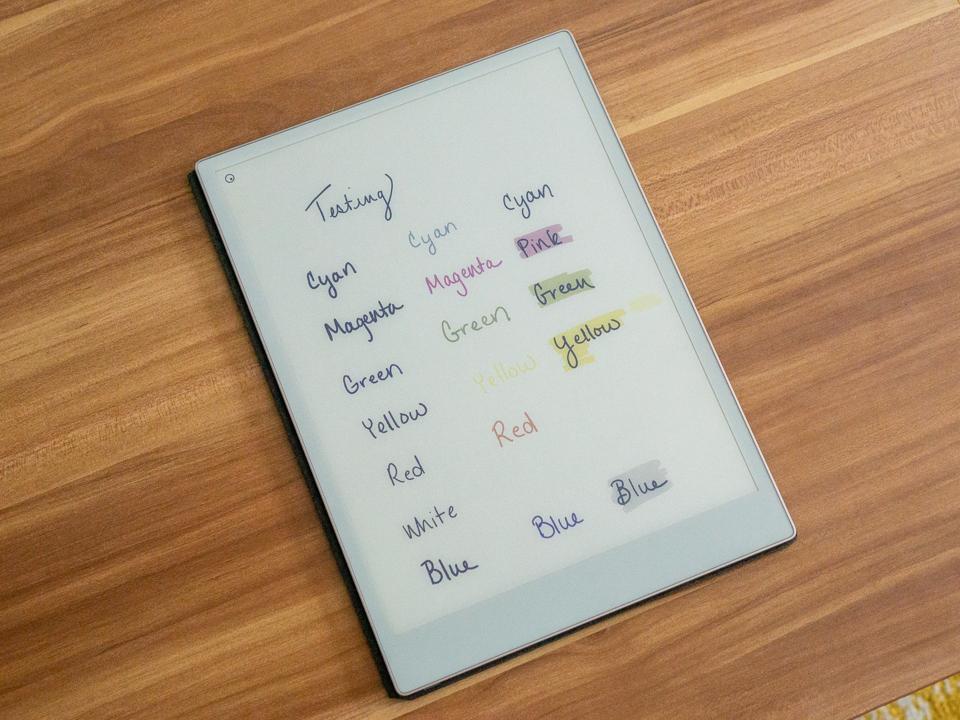 Testing
Cyan Cyan Cyan
Magenta Magenta Pink
Green Green Green
Yellow Yellow Yellow
Red Red
White
Blue Blue Blue